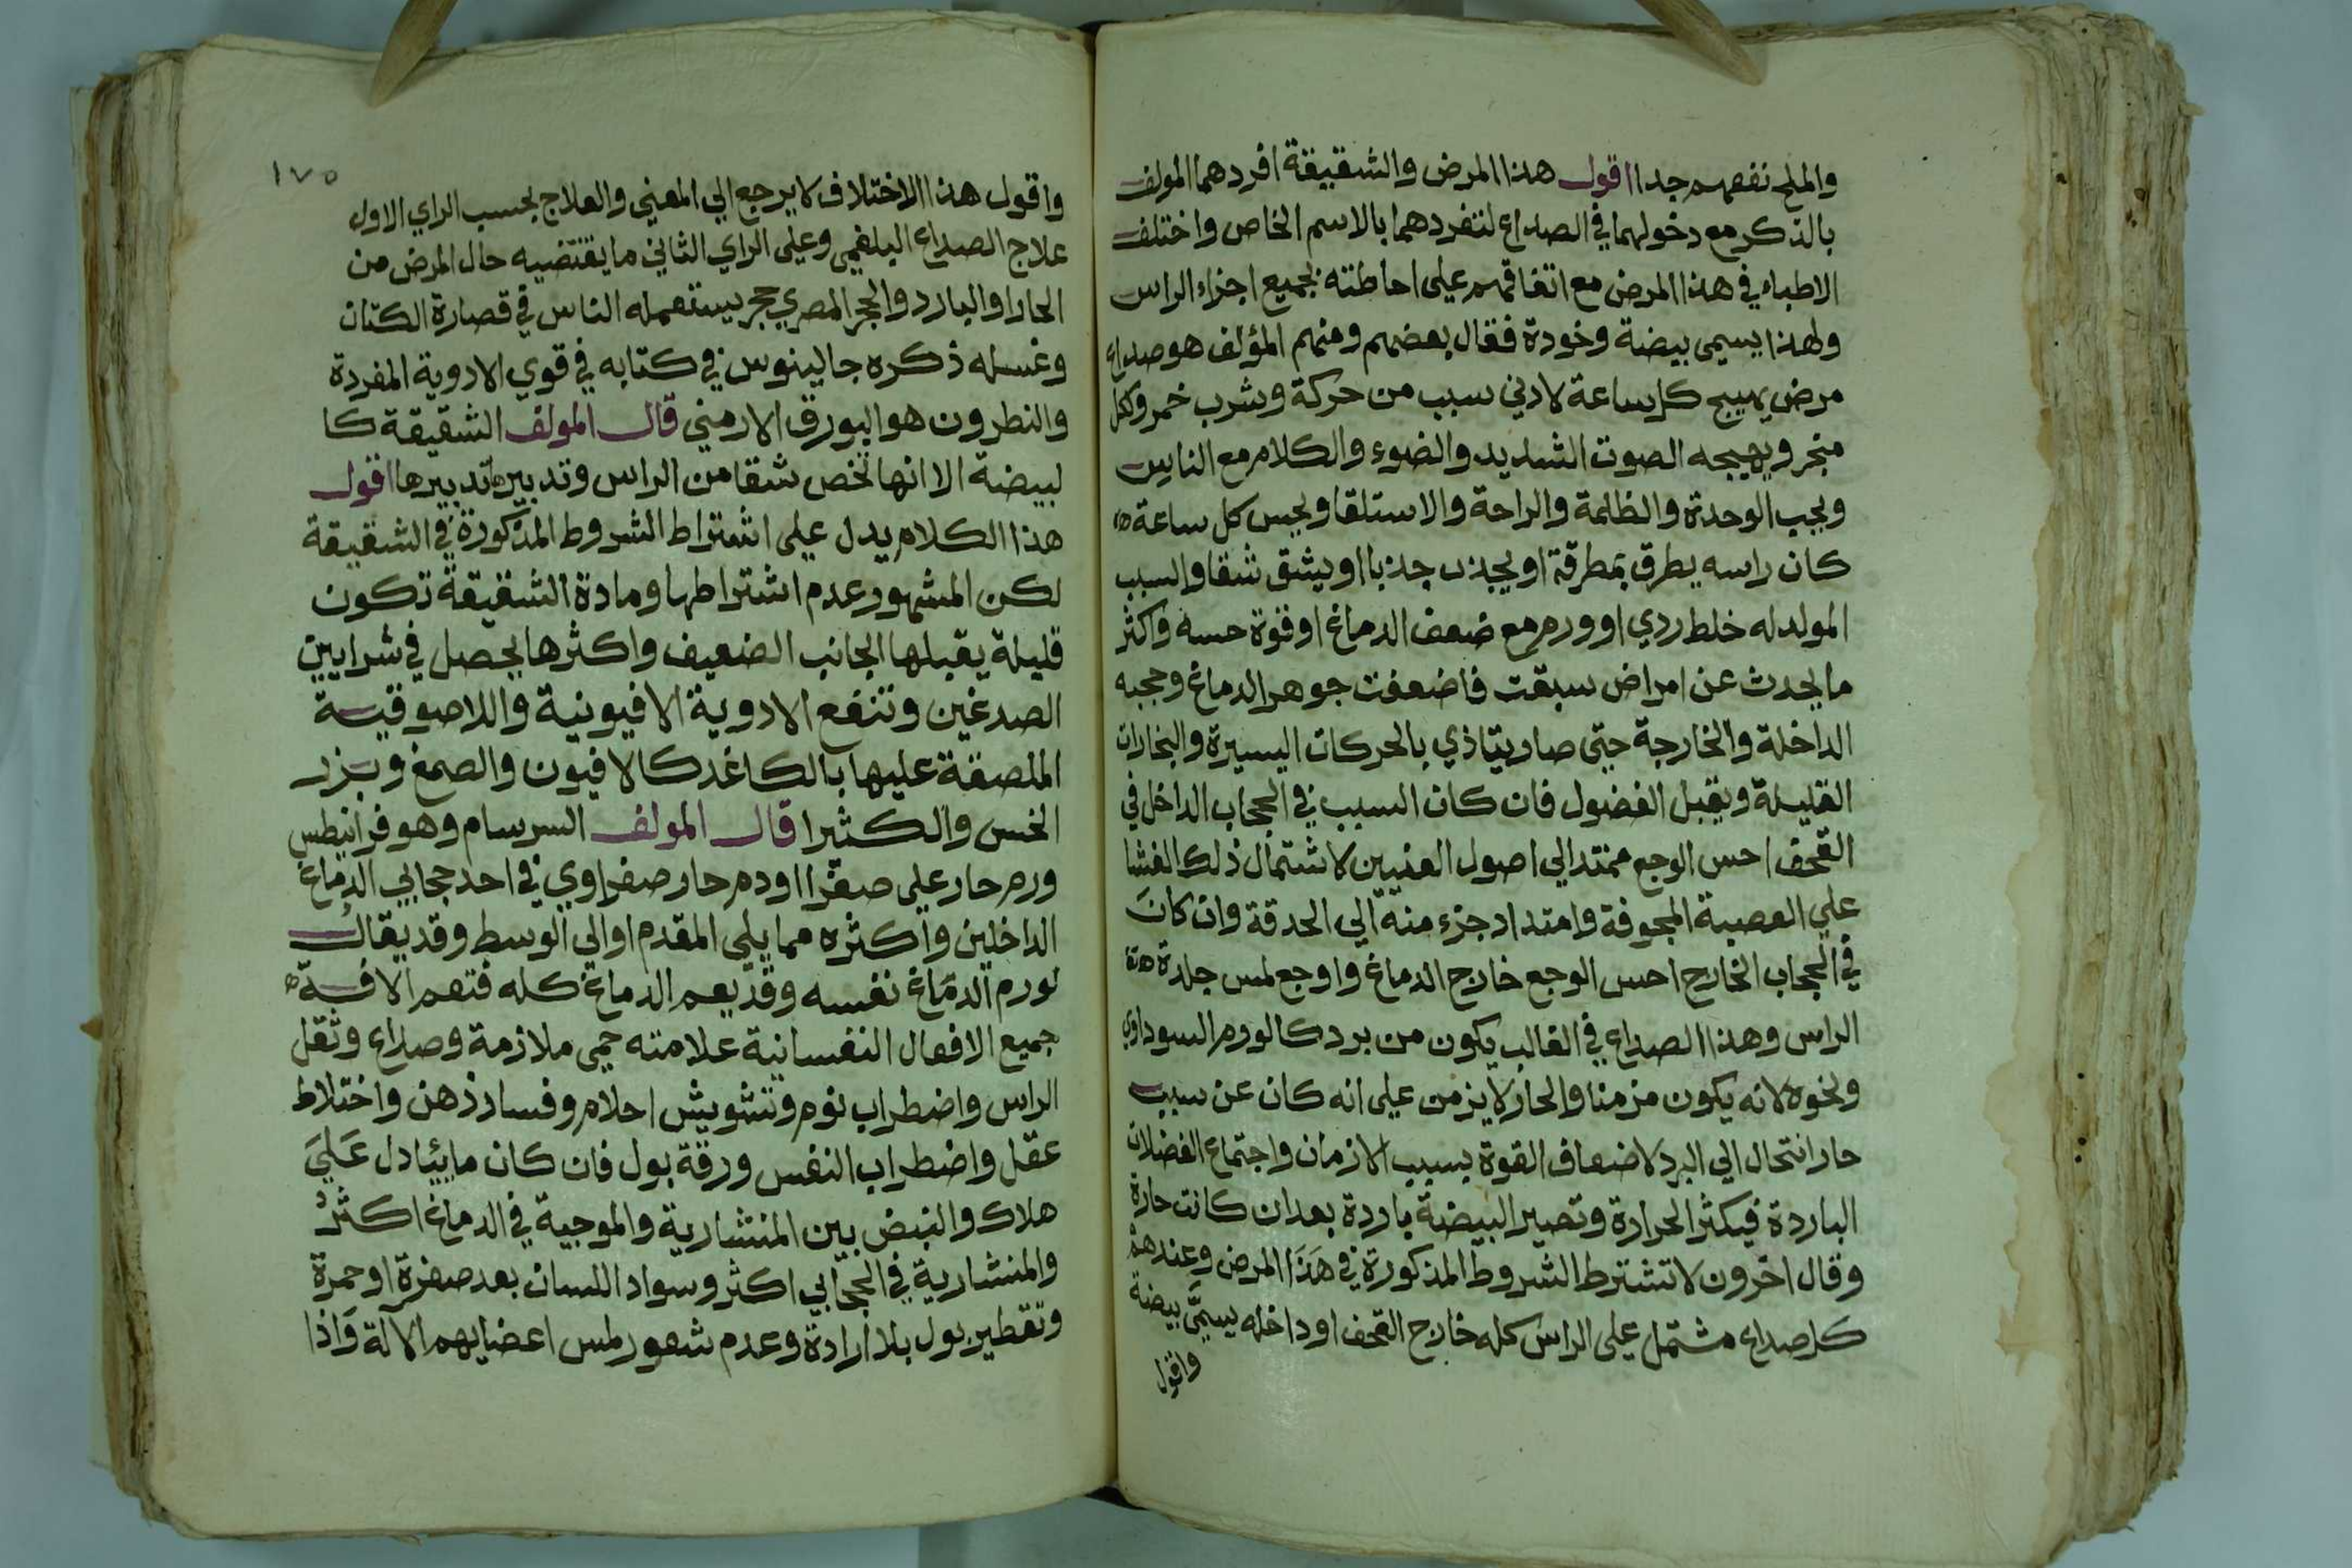 والملح نفعهم جدا اقول هذا المرض والشقيقة افردهما المولف
بالذكر مع دخولهما في الصداع لتفردهما بالاسم الخاص واختلف
الاطباء في هذا المرض مع اتفاقهم علي احاطته بجميع اجزاء الراس
ولهذا يسمي بيضة وخودة فقال بعضهم ومنهم المؤلف هو صداع
مرض يهيج كل ساعة لادني سبب من حركة وشرب خمر وكل
مبخر ويهيجه الصوت الشديد والضوء والكلام مع الناس
ويحب الوحدة والظلمة والراحة والاستلقا ويحس كل ساعة
كان راسه يطرق بمطرقة او يجذب جذبا او يشق شقا والسبب
المولد له خلط ردي او ورم مع ضعف الدماغ او قوة حسه واكثر
ما يحدث عن امراض سبقت فاضعفت جوهر الدماغ وحجبه
الداخلة والخارجة حتي صار يتاذي بالحركات اليسيرة والبخارات
القليلة ويقبل الفضول فان كان السبب في الحجاب الداخل في
القحف احس الوجع ممتد الي اصول العنيين لاشتمال ذلك الغشا
علي العصبة المجوفة وامتداد جزء منه الي الحدقة وان كان
في الحجاب الخارج احس الوجع خارج الدماغ واوجع لمس جلدة
الراس وهذا الصداع في الغالب يكون من برد كالورم السوداوي
ونحوه لانه يكون مزمنا والحار لا يزمن علي انه كان عن سبب
حار انتحال الي البرد لاضعاف القوة بسبب الازمان واجتماع الفضلات
الباردة فيكثر الحرارة وتصير البيضة باردة بعد ان كانت حارة
وقال اخرون لا تشترط الشروط المذكورة في هذا المرض وعندهم
كل صداع مشتمل علي الراس كله خارج القحف او داخله يسمي بيضة
واقول
١٧٥
واقول هذا الاختلاف لا يرجع الي المعني والعلاج بحسب الراي الاول
علاج الصداع البلغمي وعلي الراي الثاني ما يقتضيه حال المرض من
الحار او البارد والحجر المصري حجر يستعمله الناس في قصارة الكتان
وغسله ذكره جالينوس في كتابه في قوي الادوية المفردة
والنطرون هو البورق الارمني قال المولف الشقيقة كا
لبيضة الا انها تخص شقا من الراس وتدبيره تدبيرها اقول
هذا الكلام يدل علي اشتراط الشروط المذكورة في الشقيقة
لكن المشهور عدم اشتراطها ومادة الشقيقة تكون
قليلة يقبلها الجانب الضعيف واكثرها يحصل في شرايين
الصدغين وتنفع الادوية الافيونية واللاصوقية
الملصقة عليها بالكاغد كالافيون والصمغ وبزر
الخس والكثيرا قال المولف السرسام وهو فرانيطس
ورم حار علي صفرا او دم حار صفراوي في احد حجابي الدماغ
الداخلين واكثره مما يلي المقدم او الي الوسط وقد يقال
لورم الدماغ نفسه وقد يعم الدماغ كله فتعم الافة
جميع الافعال النفسانية علامته حمي ملازمة وصداع وثقل
الراس واضطراب نوم وتشويش احلام وفساد ذهن واختلاط
عقل واضطراب النفس ورقة بول فان كان مايئا دل علي
هلاك والنبض بين المنشارية والموجية في الدماغ اكثر
والمنشارية في الحجابي اكثر وسواد اللسان بعد صفرة او حمرة
وتقطير بول بلا ارادة وعدم شعور لمس اعضايهم الالة واذا